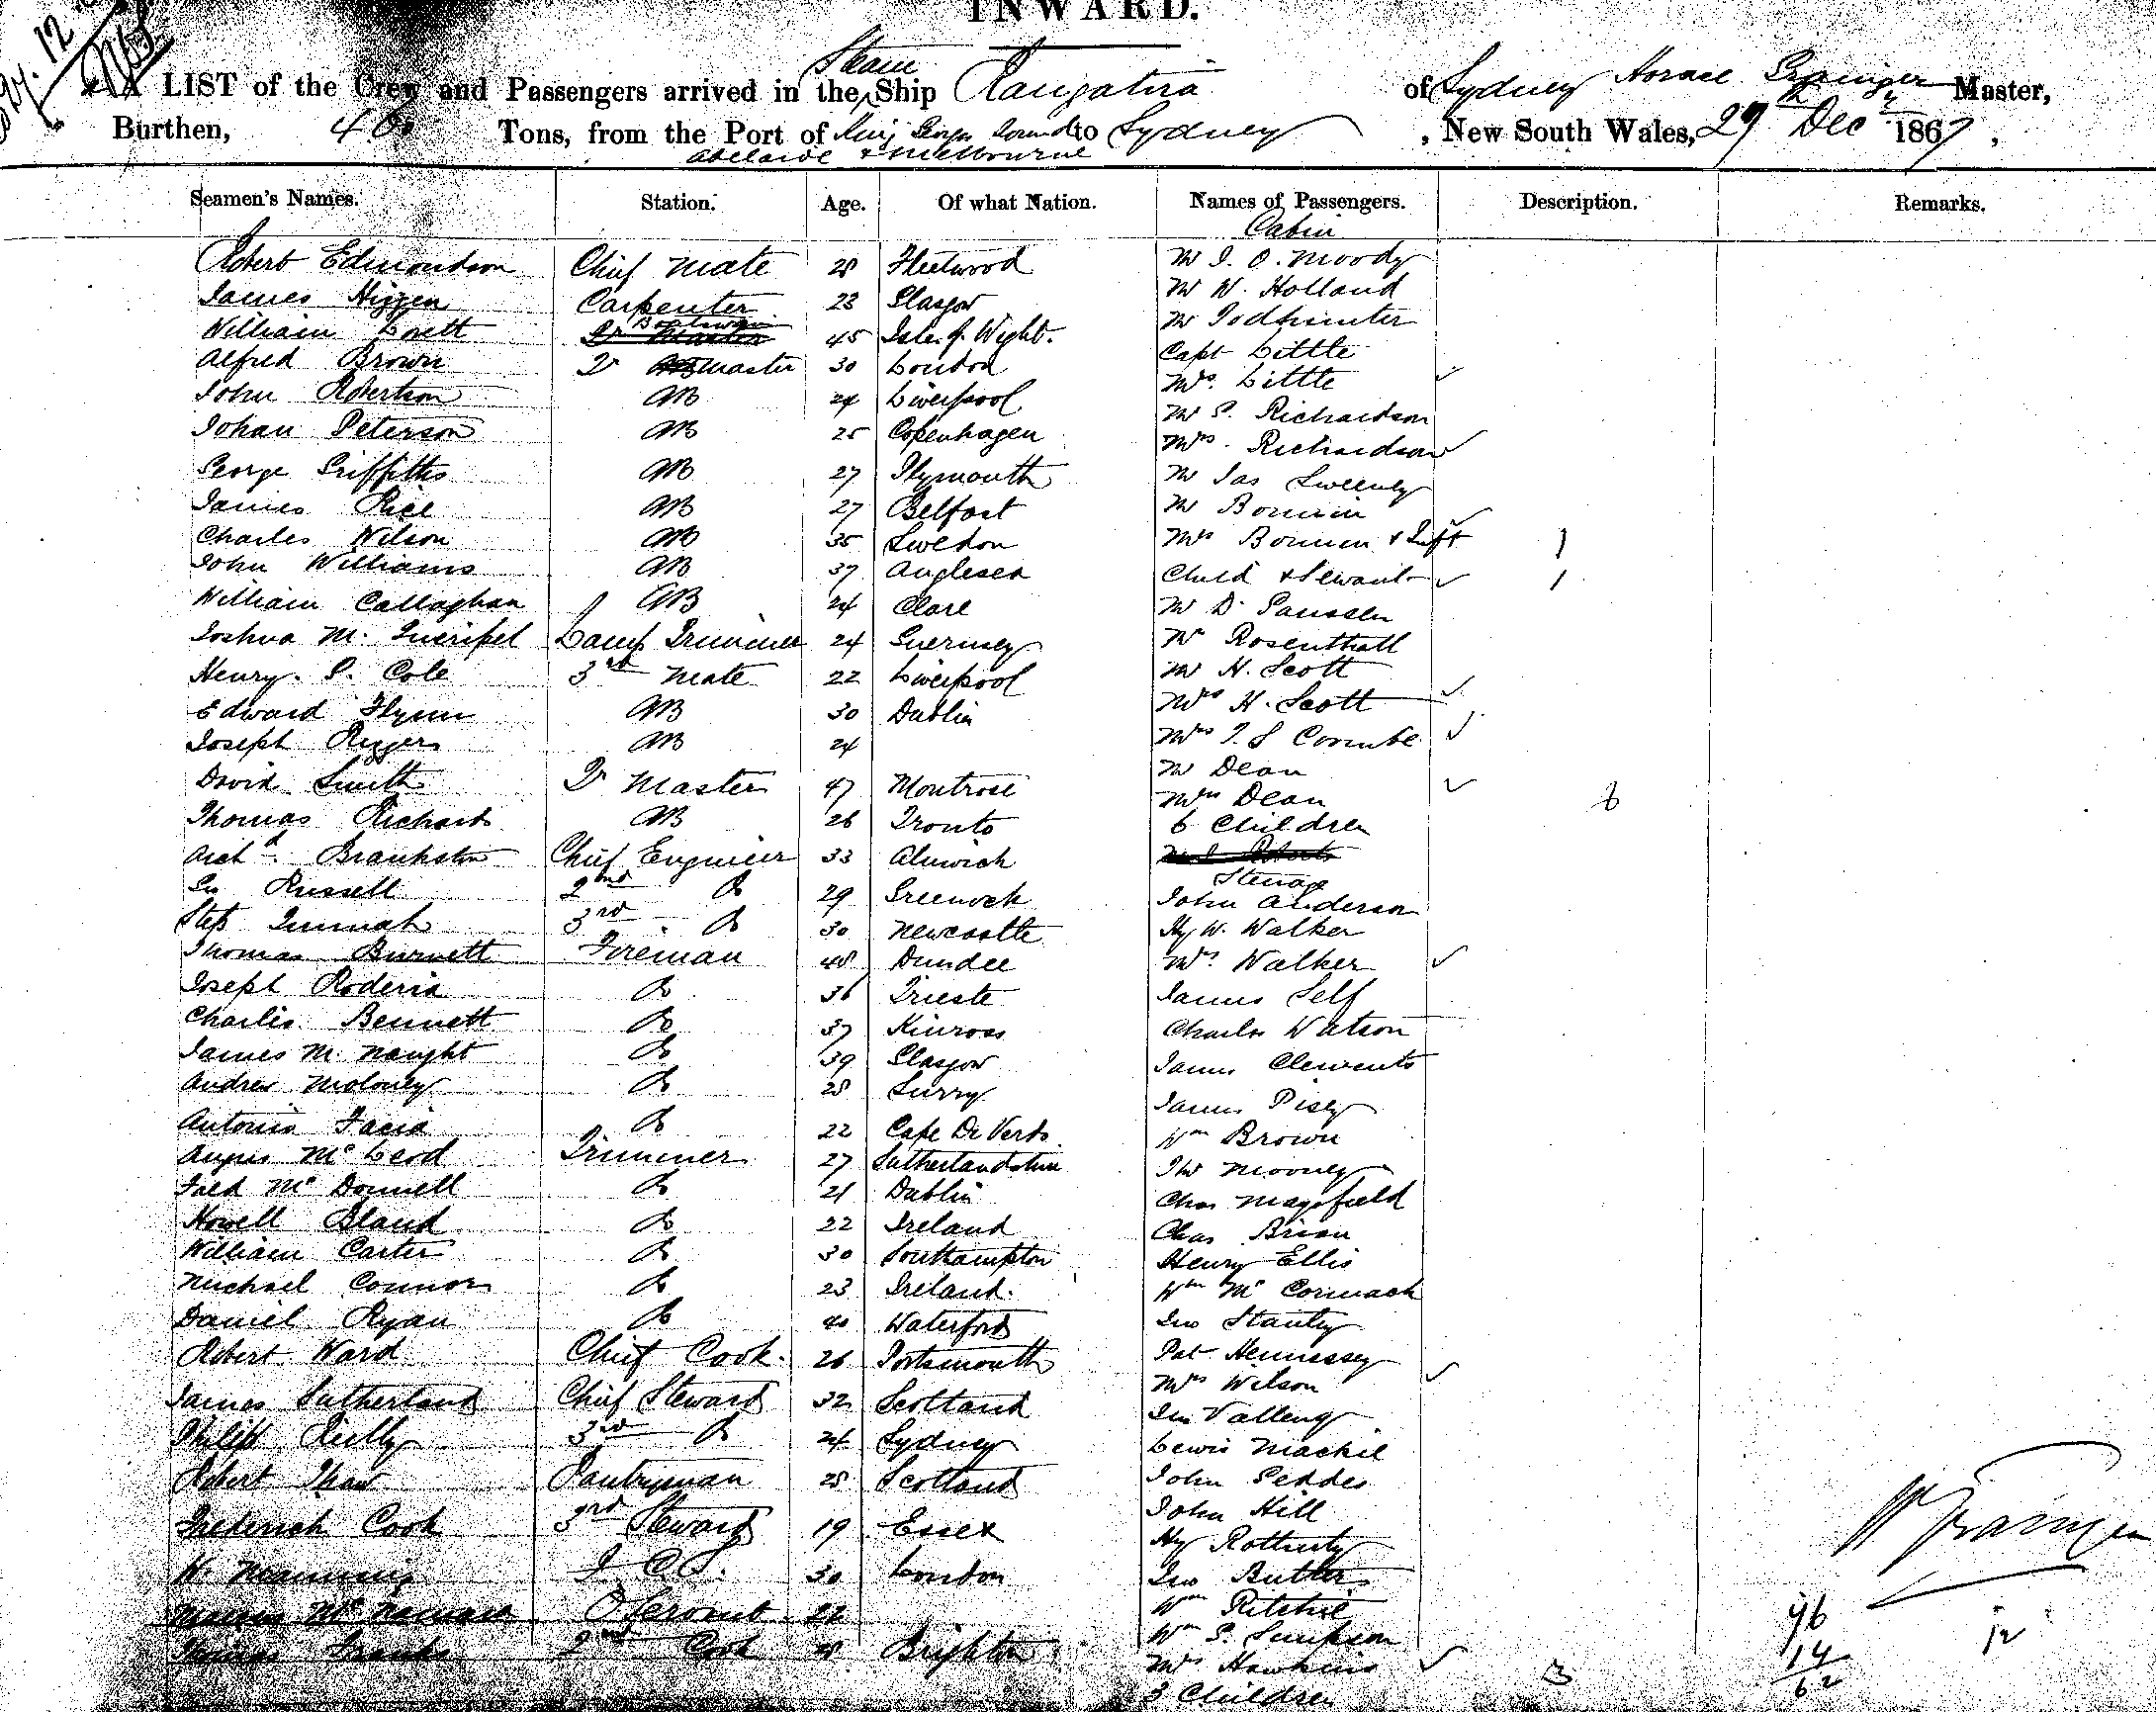 INWARD.
A LIST of the Crew and Passengers arrived in the Steam Ship Rangatira of Sydney Horace Grainger Master,
Burthen, 460 Tons, from the Port of King Georges Sound to Sydney, New South Wales, 29th Decr 1867,
Adelaide & Melbourne
Seamen's Names. Station. Age. Of what Nation. Names of Passengers. Description. Remarks.
Cabin
Robert Edmondson Chief Mate 28 Fleetwood Mr I. O. Moody
James Carpenter 23 Glasgow Mr W. Holland
William Boatswain 45 Isle of Wight. Mr Todhunter
Alfred Brown Qr Master 30 London Capt Little
John Robertson AB 24 Liverpool Mrs. Little
Johan Peterson AB 25 Copenhagen Mr S. Richardson
George Griffiths AB 27 Plymouth Mrs. Richardson
James Rice AB 27 Belfast Mr Jas Sweeney
Charles Wilson AB 35 Swedon Mr
John Williams AB 37 Anglesea Mrs & Inft 1
William Callaghan AB 24 Clare Child & Servant 1
Joshua M. Lamp Trimmer 24 Guernsey Mr D.
Henry. S. Cole 3rd Mate 22 Liverpool Mr Rosenthall
Edward Flynn AB 30 Dublin Mr H. Scott
Joseph Rogers AB 24 Mrs H. Scott
David Smith Qr Master 47 Montrose Mrs
Thomas Richards AB 26 Tronto Mr Dean
Archd. Chief Engineer 33 Alnwick Mrs Dean
Russell 2nd Do 29 Greenock 6 Children 6
3rd Do 30 Newcastle
Steerage
Thomas Burnett Fireman 48 Dundee John Anderson
Joseph Do 36 Trieste Hy W. Walker
Charles Bennett Do 37 Kinross Mrs. Walker
James McNaught Do 39 Glasgow James Self
Andrew Moloney Do 28 Surry Charles Watson
Antonio Do 22 Cape De Verds James Clements
Angus McLeod Trimmer 27 Sutherlandshire James
Fred McDonnell Do 21 Dublin Wm Brown
Howell Bland Do 22 Ireland Mooney
William Carter Do 30 Southampton Chas Magsfield
Michael Connor Do 23 Ireland. Chas Brian
Daniel Ryan Do 40 Waterford Henry Ellis
Robert Ward Chief Cook. 26 Portsmouth Wm McCormack
James Sutherland Chief Steward 32 Scotland Geo Stanley
Philip Reilly 3rd Do 24 Sydney Pat Hennessey
Robert Shaw Pantryman 28 Scotland Mrs Wilson
Frederick Cook 3rd Steward 19 Essex
H. Manning 30 London Lewis Mackie
McNamara 22 John Geddes
Thomas Franks 2nd Cook 28 Brighton John Hill
Hy
Geo Butler
Wm Ritchie
Wm S. Simpson
Mrs Hawkins
3 Children 3
H Grainger
46
14
62
12